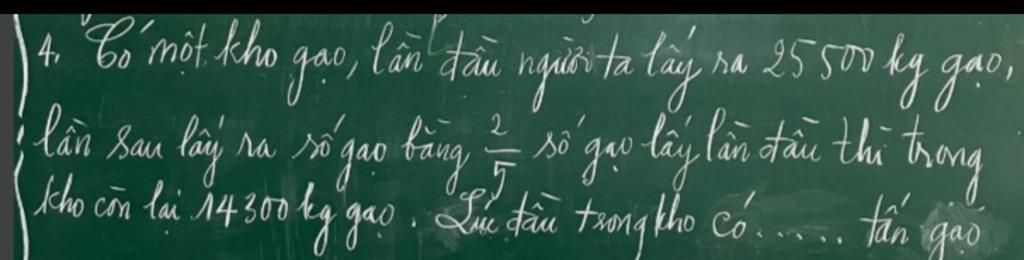 4. Có một kho gạo, lần đầu người ta lấy ra 25 500 kg gạo,
lần sau lấy ra số gạo bằng 2/5 số gạo lấy lần đầu thì trong
kho còn lại 14 300 kg gạo. Lúc đầu trong kho có...... tấn gạo